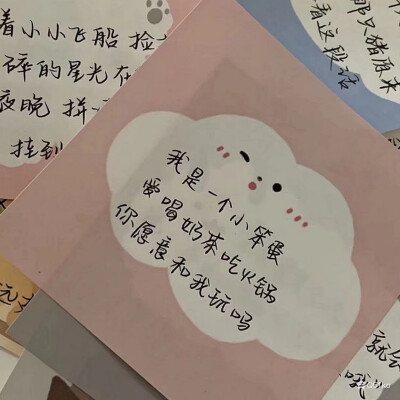 着小小飞船 捡
碎的星光在
夜晚 拼
挂到
那只猪原来
看这段话
我是一个小笨蛋
爱喝奶茶吃火锅
你愿意和我玩吗
远
就会
哦